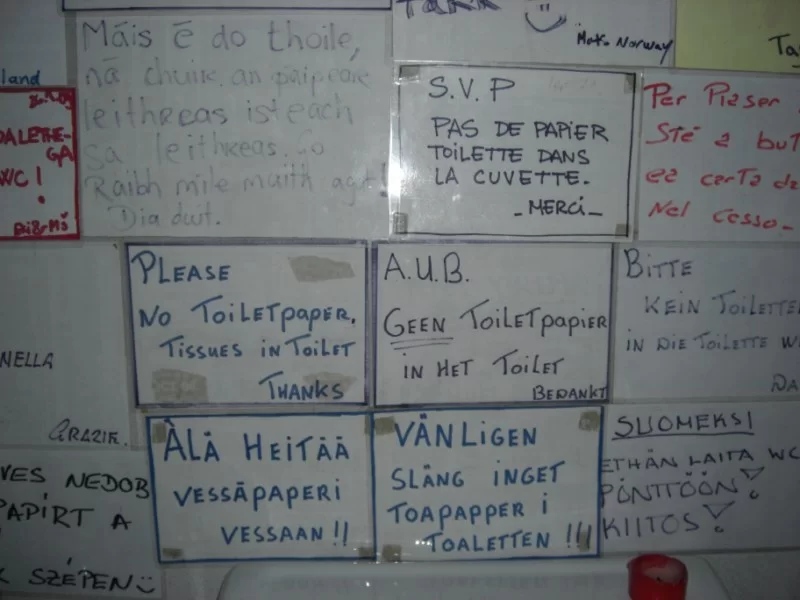 TAKK
Mats Norway
land
Máis é do thoile,
ná chuir an páipear
leithreas isteach
sa leithreas. Go
Raibh mile maith agt!
Dia duit.
S.V.P
PAS DE PAPIER
TOILETTE DANS
LA CUVETTE.
_MERCI_
Per Piaser
Sté a but
ea carta da
Nel cesso-
DALETHE-
GA
WC!
PLEASE
NO TOILETPAPER,
TISSUES IN TOILET
THANKS
A.U.B.
GEEN TOILETPAPIER
IN HET TOILET
BEDANKT
BITTE
KEIN TOILETTE
IN DIE TOILETTE W
DA
NELLA
GRAZIE.
VES NEDOB
PAPÍRT A
SZÉPEN
ÄLÄ HEITÄÄ
VESSAPAPERI
VESSAAN!!
VÄNLIGEN
SLÄNG INGET
TOAPAPPER I
TOALETTEN!!!
SUOMEKSI
ETHÄN LAITA WC
PÖNTTÖÖN!
KIITOS!